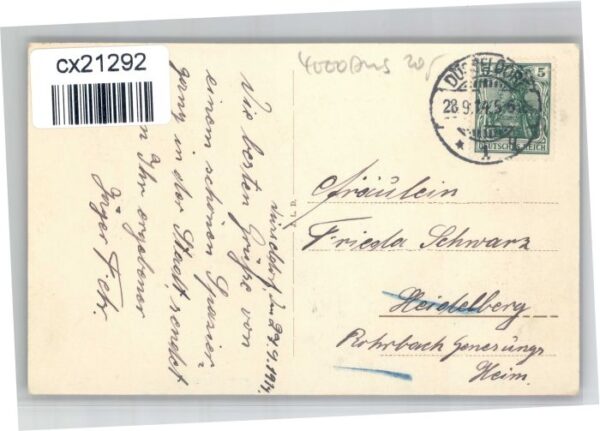 cx21292
4000 Düs 20,-
DÜSSELDORF
28.9.14.5-6
* 1
5
DEUTSCHES REICH
Düsseldorf den 27.9.1914.
Die besten Grüße von
einem schönen Spazier-
gang in der Stadt sendet
Ihr ergebener
Jäger Fehr.
Fräulein
Frieda Schwarz
Heidelberg
Rohrbach Genesungs
Heim.